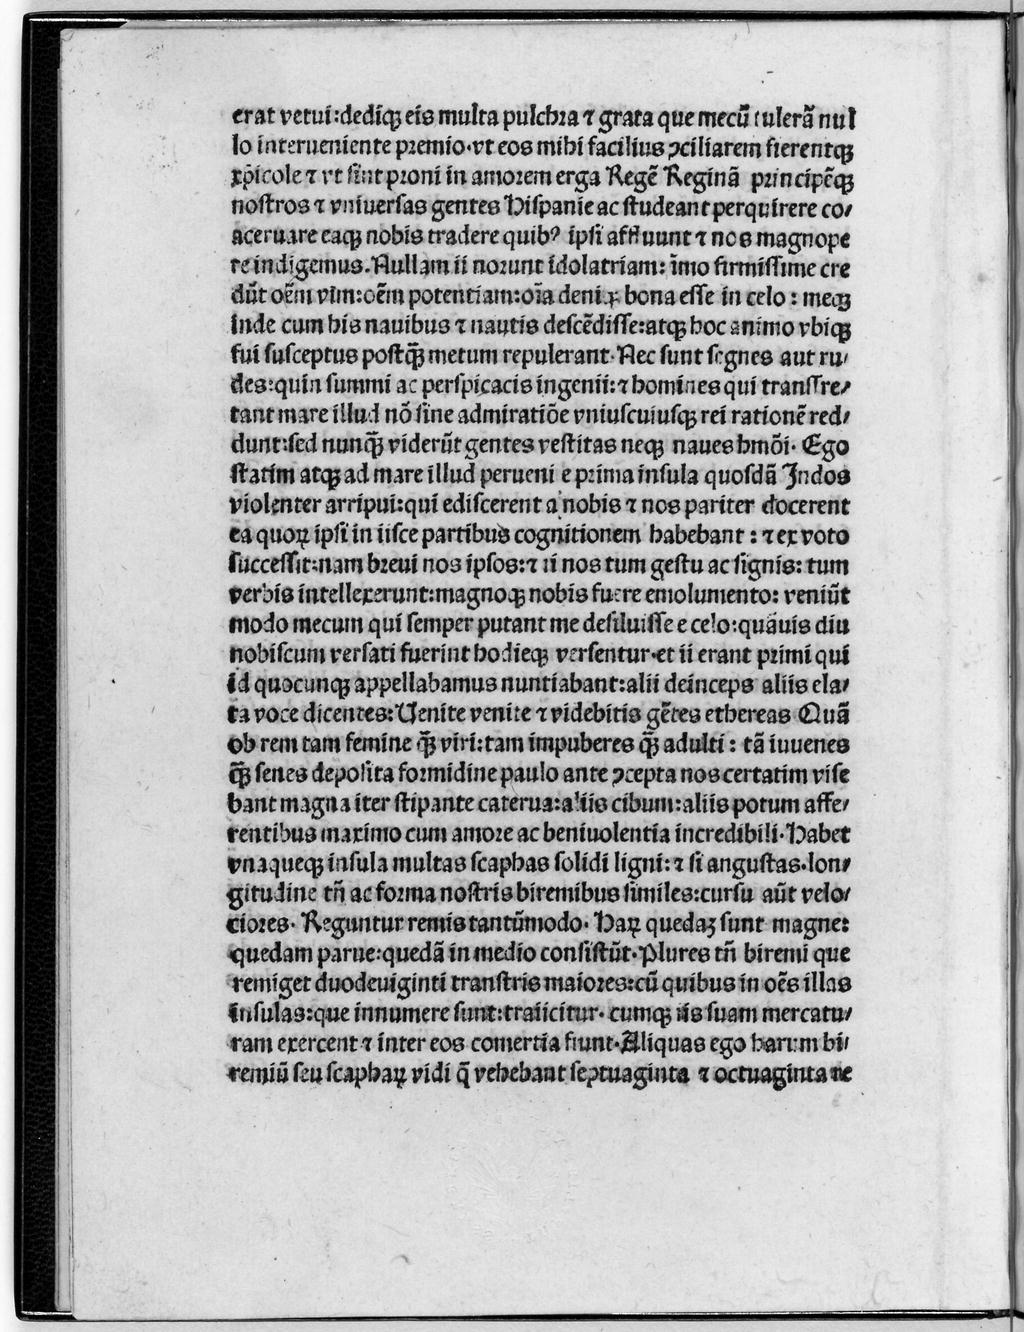 erat vetui:dediqꝫ eis multa pulchra ⁊ grata que mecū tulerā nul
lo interueniente premio·vt eos mihi facilius ꝯciliarem fierentqꝫ
xp̄icole ⁊ vt sint proni in amorem erga Regē Reginā principēqꝫ
nostros ⁊ vniuersas gentes Hispanie ac studeant perquirere co/
aceruare eaqꝫ nobis tradere quibꝰ ipsi affluunt ⁊ nos magnope
re indigemus.Nullam ii norunt idolatriam: īmo firmissime cre
dūt oēm vim:oēm potentiam:oīa deniꝗ bona esse in celo : meqꝫ
inde cum his nauibus ⁊ nautis descēdisse:atqꝫ hoc animo vbiqꝫ
fui susceptus postqꝫ̄ metum repulerant·Nec sunt segnes aut ru/
des:quin summi ac perspicacis ingenii:⁊ homines qui transfre/
tant mare illud nō sine admiratiōe vniuscuiusqꝫ rei rationē red/
dunt:sed nunqꝫ̄ viderūt gentes vestitas neqꝫ naues hmōi· Ego
statim atqꝫ ad mare illud perueni e prima insula quosdā Indos
violenter arripui:qui ediscerent a nobis ⁊ nos pariter docerent
ea quoꝝ ipsi in iisce partibus cognitionem habebant : ⁊ ex voto
successit:nam breui nos ipsos:⁊ ii nos tum gestu ac signis: tum
verbis intellexerunt:magnoqꝫ nobis fuere emolumento: veniūt
modo mecum qui semper putant me desiluisse e celo:quāuis diu
nobiscum versati fuerint hodieqꝫ versentur·et ii erant primi qui
id quocunqꝫ appellabamus nuntiabant:alii deinceps aliis ela/
ta voce dicentes:Uenite venite ⁊ videbitis gētes ethereas Quā
ob rem tam femine qꝫ̄ viri:tam impuberes qꝫ̄ adulti : tā iuuenes
qꝫ̄ senes deposita formidine paulo ante ꝯcepta nos certatim vise
bant magna iter stipante caterua:aliis cibum:aliis potum affe/
rentibus maximo cum amore ac beniuolentia incredibili·Habet
vnaqueqꝫ insula multas scaphas solidi ligni:⁊ si angustas·lon/
gitudine tn̄ ac forma nostris biremibus similes:cursu aūt velo/
ciores· Reguntur remis tantūmodo· Haꝝ quedaꝫ sunt magne:
quedam parue:quedā in medio consistūt·Plures tn̄ biremi que
remiget duodeuiginti transtris maiores:cū quibus in oēs illas
insulas:que innumere sunt:traiicitur· cumqꝫ iis suam mercatu/
ram exercent ⁊ inter eos comertia fiunt·Aliquas ego harum bi/
remiū seu scaphaꝝ vidi q̄ vehebant septuaginta ⁊ octuaginta re